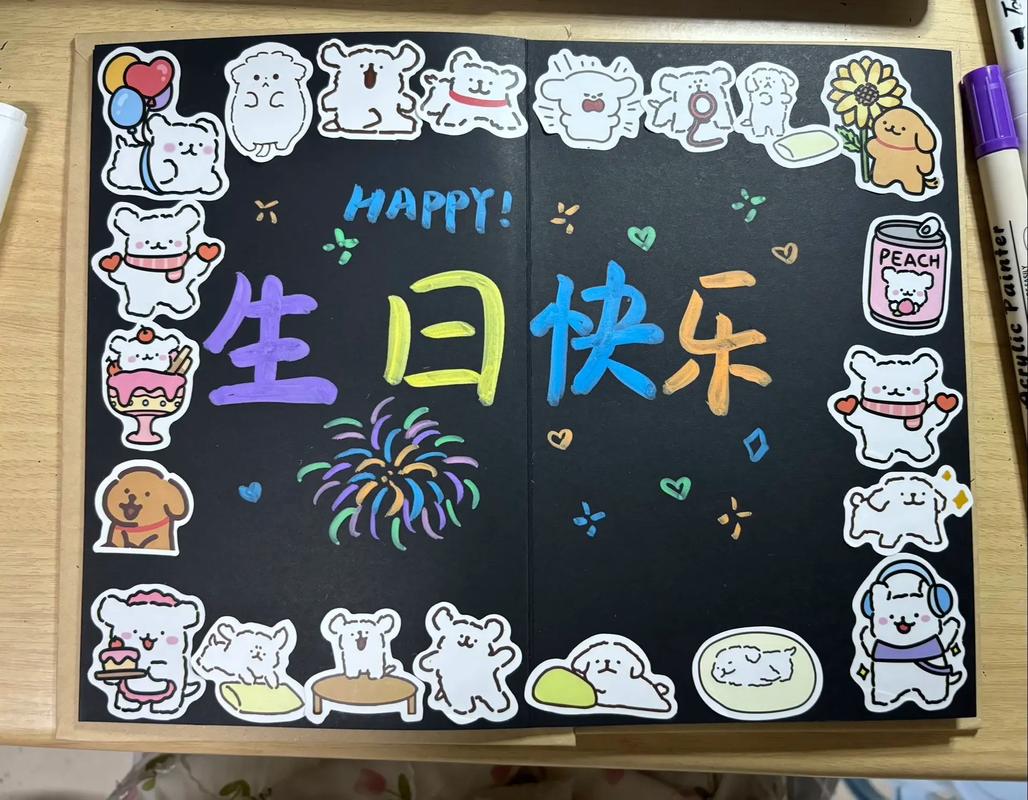 HAPPY!
生日快乐
PEACH
Acrylic Painter